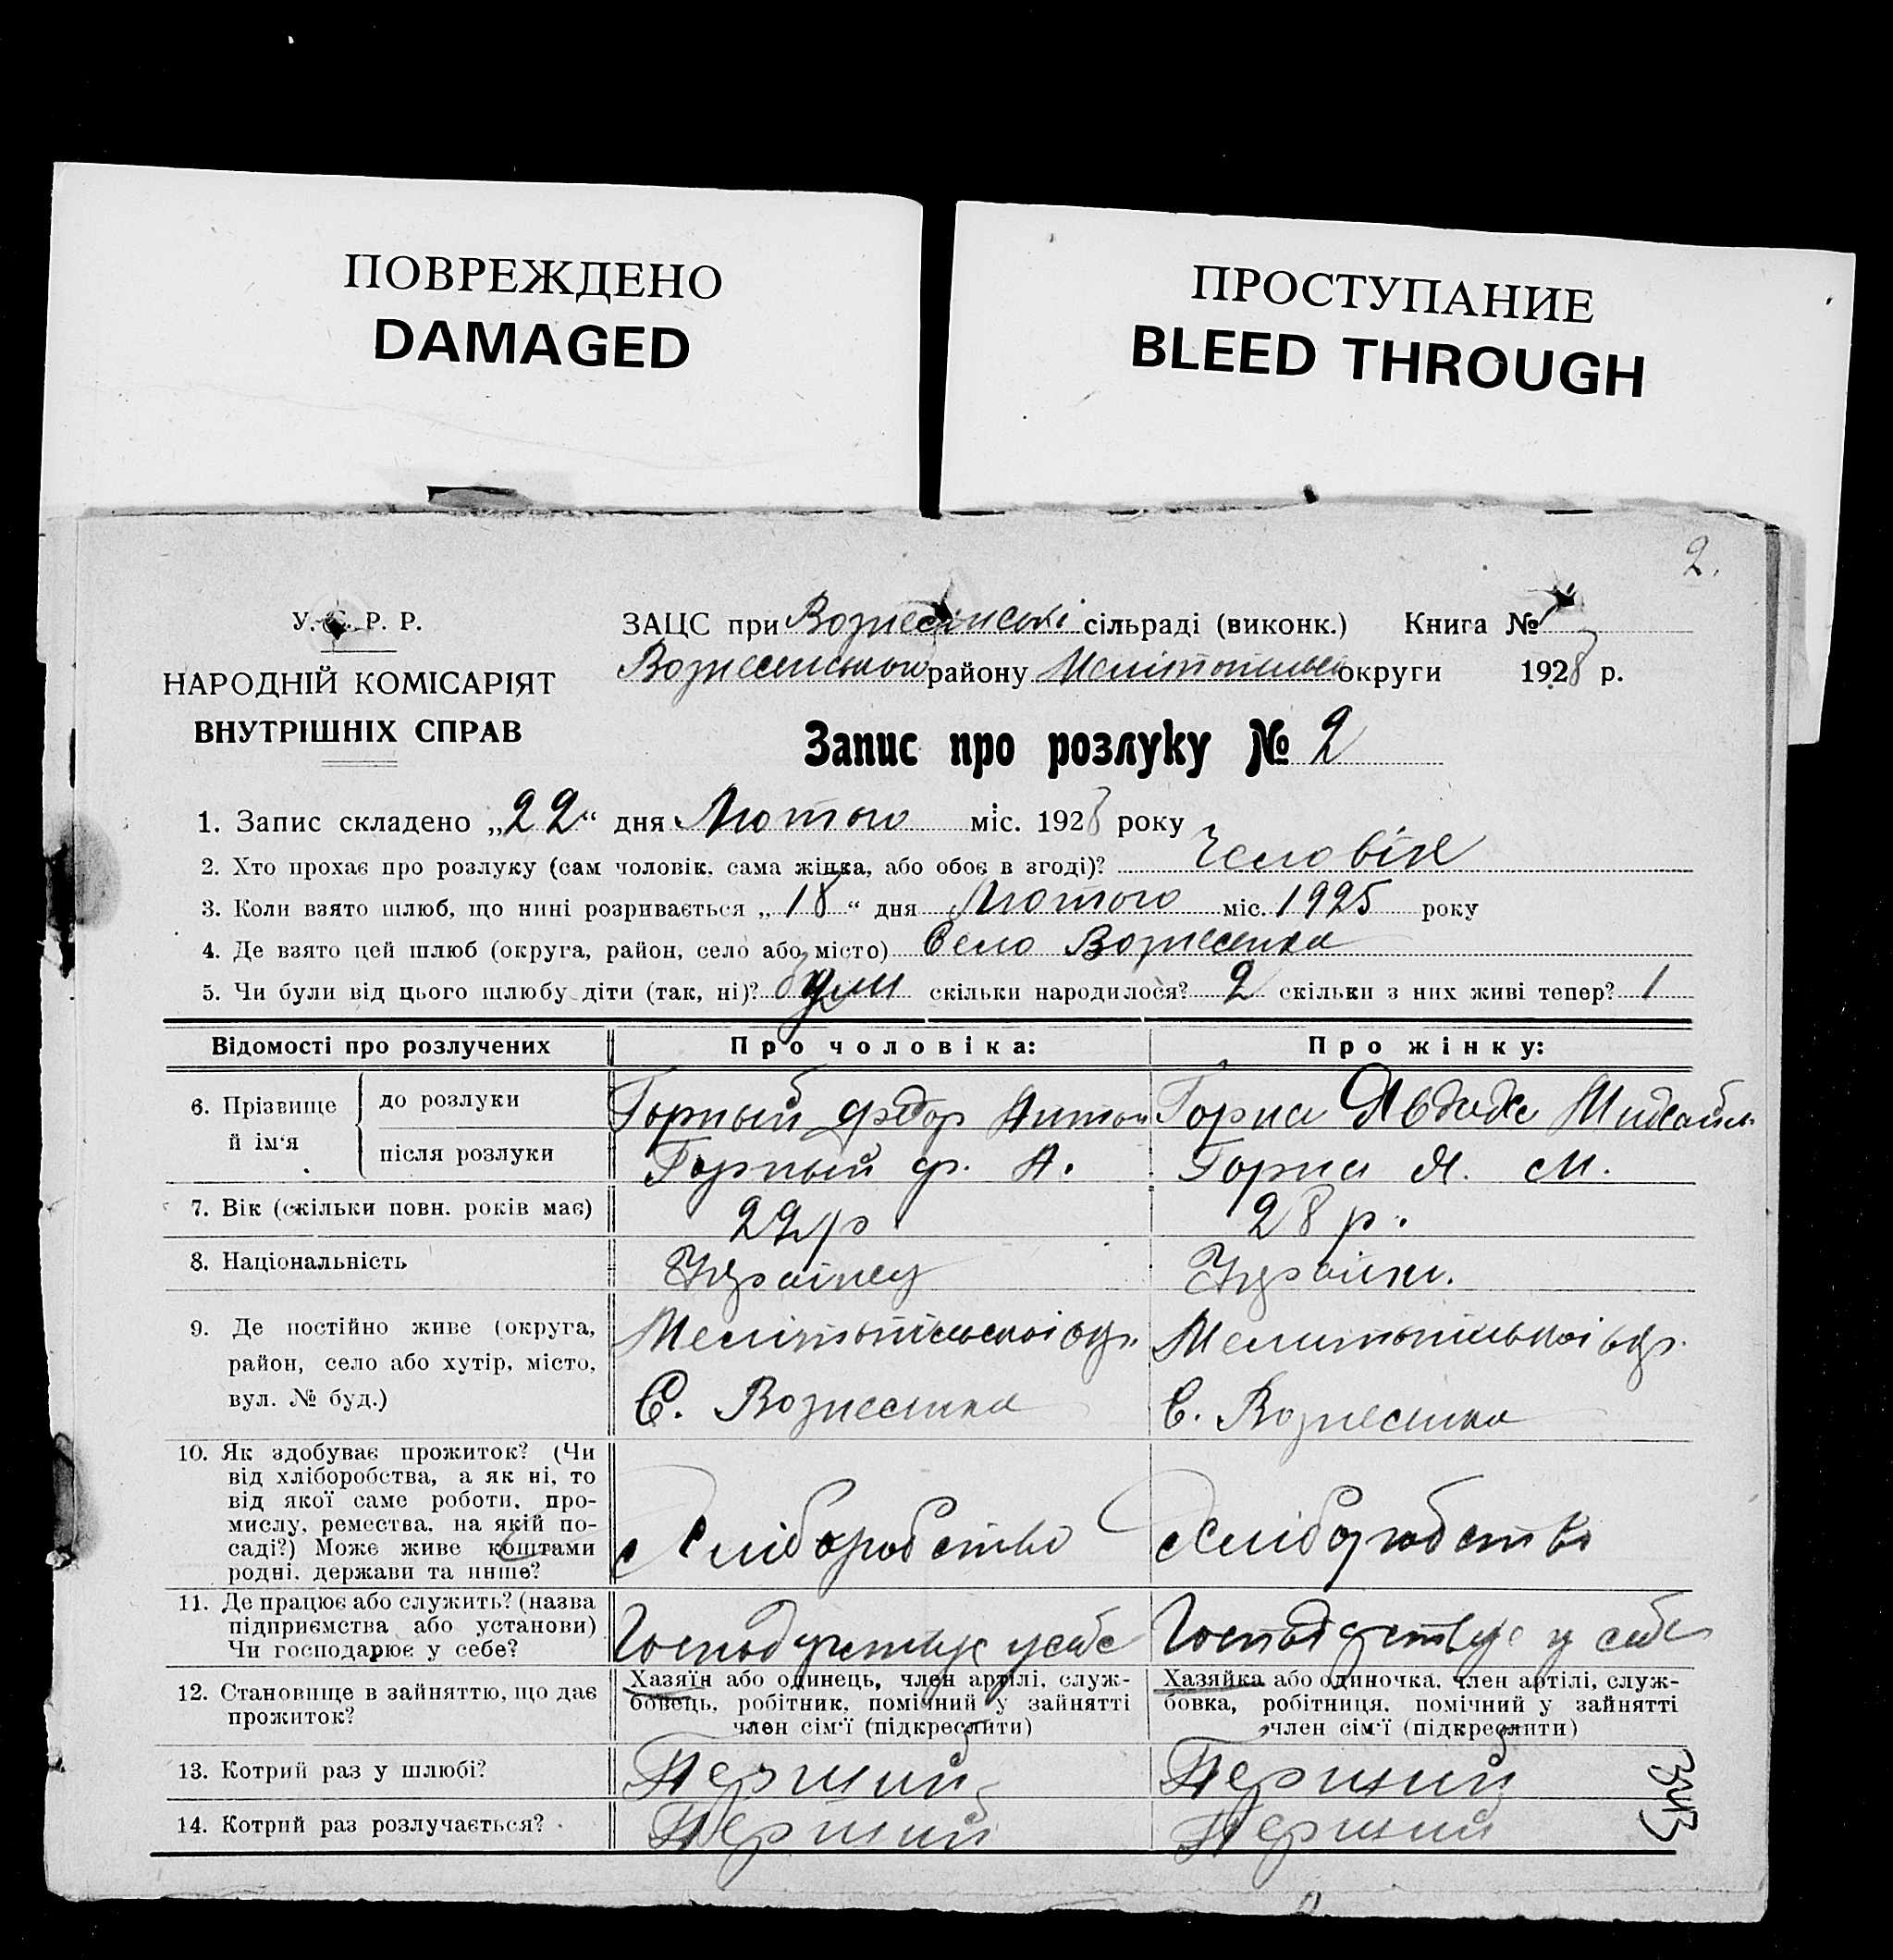 ПОВРЕЖДЕНО
DAMAGED
ПРОСТУПАНИЕ
BLEED THROUGH
2.
У. С. Р. Р.
НАРОДНІЙ КОМІСАРІЯТ
ВНУТРІШНІХ СПРАВ
ЗАЦС при Вознесінські сільраді (виконк.) Книга №
Вознесенського району Мелітопільск округи 1928 р.
Запис про розлуку № 2
1. Запис складено „22“ дня Лютого міс. 1928 року
2. Хто прохає про розлуку (сам чоловік, сама жінка, або обоє в згоді)? Чоловік
3. Коли взято шлюб, що нині розривається „18“ дня Лютого міс. 1925 року
4. Де взято цей шлюб (округа, район, село або місто) Село Вознесенка
5. Чи були від цього шлюбу діти (так, ні)? були скільки народилося? 2 скільки з них живі тепер? 1
Відомості про розлучених
Про чоловіка:
Про жінку:
6. Прізвище й ім'я
до розлуки
Горный Федор Антон
Горна Явдоха Михайл
після розлуки
Горный Ф. А.
Горна Я. М.
7. Вік (скільки повн. років має)
22 р
28 р.
8. Національність
Українец
Українк.
9. Де постійно живе (округа,
район, село або хутір, місто,
вул. № буд.)
Мелітопільскоі окр.
С. Вознесенка
Мелитопільскоі окр.
С. Вознесенка
10. Як здобуває прожиток? (Чи
від хліборобства, а як ні, то
від якої саме роботи, про-
мислу, ремества, на якій по-
саді?) Може живе коштами
родні, держави та инше?
Хліборобство
Хліборобство
11. Де працює або служить? (назва
підприємства або установи)
Чи господарює у себе?
Господарствує у себе
Господарствує у себе
12. Становище в зайняттю, що дає
прожиток?
Хазяїн або одинець, член артілі, служ-
бовець, робітник, помічний у зайнятті
член сім'ї (підкреслити)
Хазяйка або одиночка, член артілі, служ-
бовка, робітниця, помічний у зайнятті
член сім'ї (підкреслити)
13. Котрий раз у шлюбі?
Перший
Перший
14. Котрий раз розлучається?
Перший
Перший